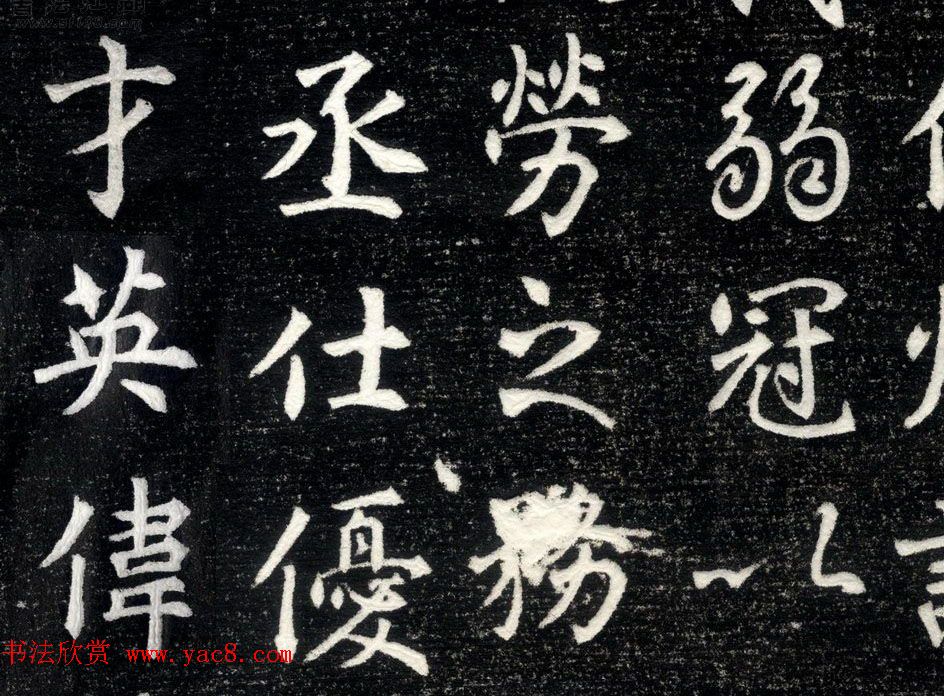 弱冠以
勞之務
丞仕優
才英偉
书法欣赏 www.yac8.com